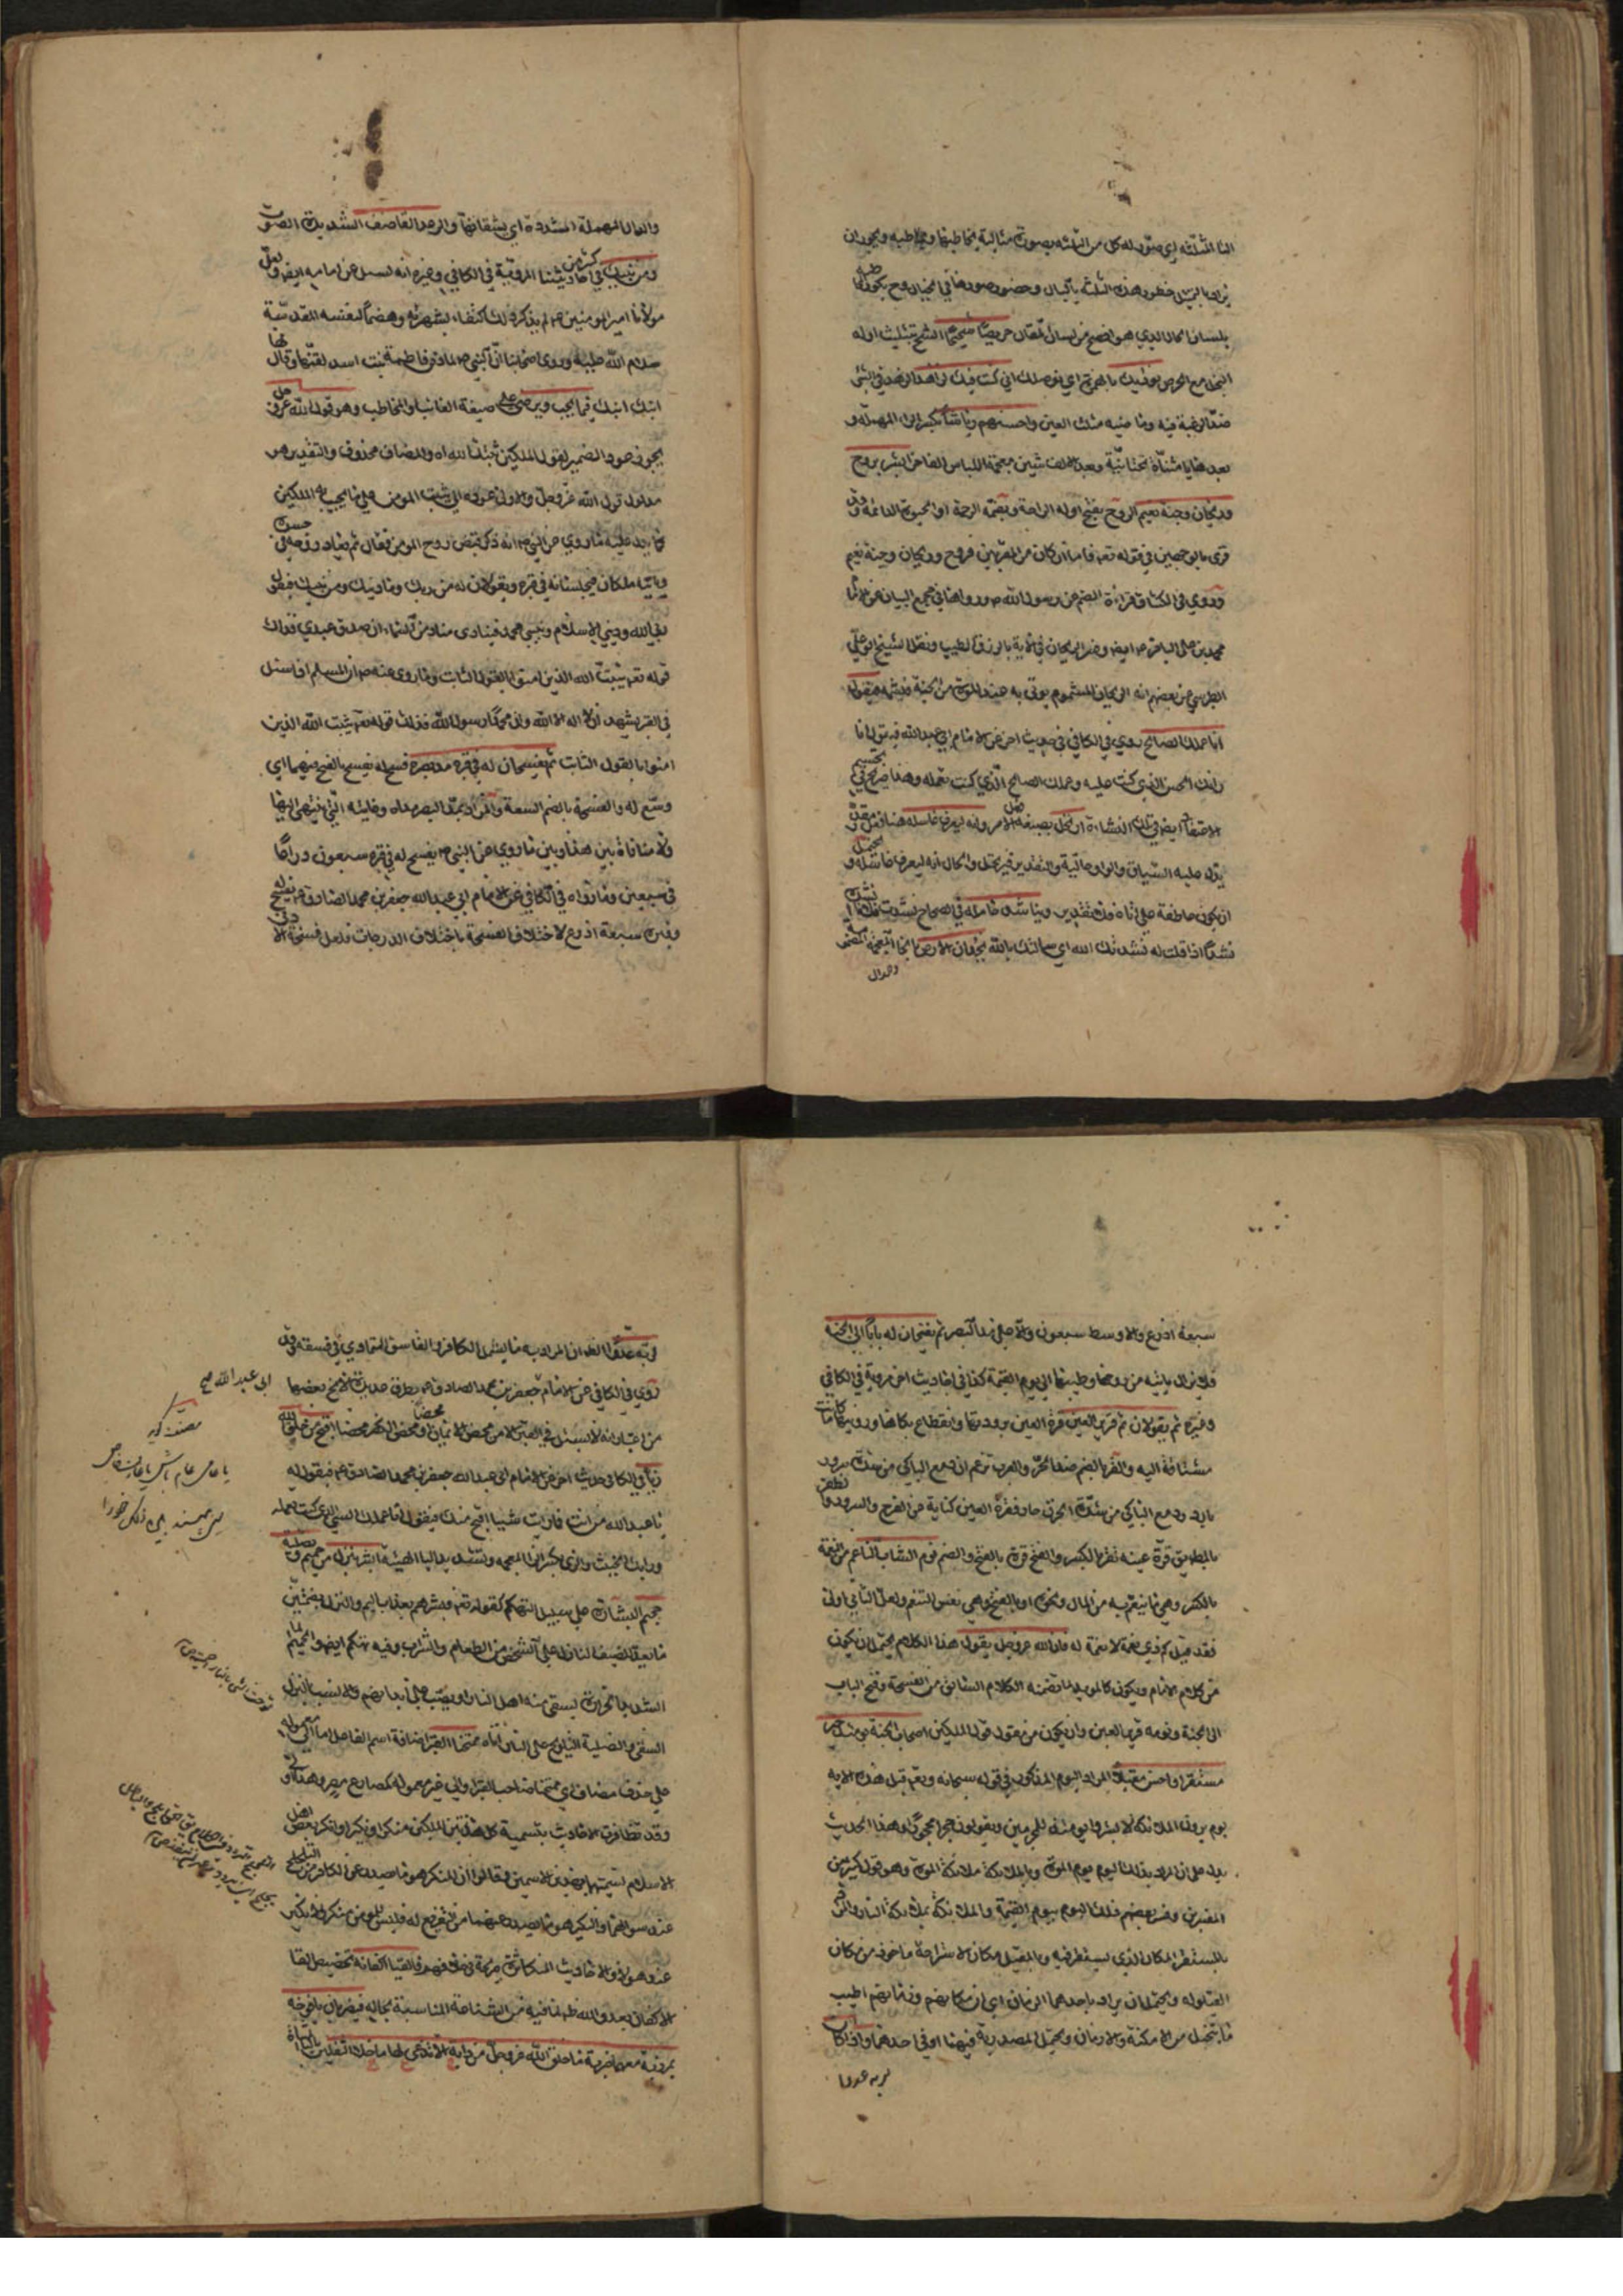 الثا المثلثه اي صور له كل من الثلثه بصورة مثالية يخاطبها وتخاطبه ويجوز ان
يراد بالتمثل خطور هذه الثلثه بالبال وحضور صورها في الخيال وح يكون
بلسان الحال الذي هو افصح من لسان المقال حريصا شحيحا الشح بتثليث اوله
البخل مع الحرص
ضد الرغبة فيه وما منيه مثلث العين واحسنهم رياشا بكسر الراء المهمله و
بعدها يا مثناة تحتانيّة وبعد الالف شين معجمة اللباس الفاخر ابشر بروح
وريحان وجنة نعيم الروح بفتح اوله الراحة وبضمه الرحمة او الحيوة الدائمة وقد
قرئ بالوجهين في قوله تعه فاما ان كان من المقربين فروح وريحان وجنة نعيم
وروي في الكشاف قراءة الضم عن رسول الله ص ورواها في مجمع البيان عن
محمد بن علي الباقر ع ايضا وفسر الريحان في الآية بالرزق الطيب ونقل الشيخ ابو علي
الطبرسي عن بعضهم انه الريحان المشموم يوتى به عند الموت من الجنة فيشمه فيقول
انا عملك الصالح روي في الكافي في حديث اخر عن الامام ابي عبد الله فيقول انا
رايك الحسن الذي كنت عليه وعملك الصالح الذي كنت تعمله وهذا صريح في تجسيم
الاعتقاد ايضا في تلك النشاءة ارتحل بصيغة الامر وانه ليعرف غاسله
يدل عليه السياق والواو حالية والتقدير فيرتحل والحال انه ليعرف غاسله و
ان يكون عاطفة على اناه وينا شد حامله في الصحاح نشدت فلانا
نشدا اذا قلت له نشدتك الله اي سالتك بالله يخدان الارض بالخا المعجمة
والدال
والدال المهملة المشددة اي يشقانها والرعد القاصف الشديد الصوت
ومن نبيك في كثير من احاديثنا المروية في الكافي وغيره انه يسئل عن امامه ايضا ولعل
مولانا امير المومنين ع لم يذكر ذلك اكتفاء بشهرته وهضما لنفسه المقدسة
سلام الله عليه وروى اصحابنا ان النبي ص لما دفن فاطمة بنت اسد لقنها وقال لها
ابنك ابنك فيما يحب ويرضى على صيغة الغائب او المخاطب وهو قول الله عز وجل
يجوز عود الضمير لقول الملكين ثبتك الله اه والمضاف محذوف والتقدير هو
مدلول قول الله عز وجل والاولى عوده الى تثبت المومن على ما يجيب به الملكين
كما يدل عليه ما روي عن النبي ص انه ذكر قبض روح المومن فقال ثم يعاد روحه في جسده
وياتيه ملكان فيجلسانه في قبره ويقولان له من ربك وما دينك ومن نبيك فيقول
ربي الله وديني الاسلام ونبيي محمد فينادى مناد من السماء ان صدق عبدي فذلك
قوله تعه يثبت الله الذين امنوا بالقول الثابت وما روي عنه ص ان المسلم اذا سئل
في القبر يشهد ان لا اله الا الله وان محمدا رسول الله فذلك قوله تعه يثبت الله الذين
امنوا بالقول الثابت ثم يفسحان له في قبره مد بصره فسح له يفسح بالفتح فيهما اي
وسع له والفسحة بالضم السعة والمراد بمد البصر مداه وغايته التي ينتهي اليها
ولا منافاة بين هذا وبين ما روي عن النبي ص يفسح له في قبره سبعون ذراعا
في سبعين وما رواه في الكافي عن الامام ابي عبد الله جعفر بن محمد الصادق ع يفسح له
وقبره سبعة اذرع لاختلاف الفسحة باختلاف الدرجات فلعل فسحة الادنى
سبعة اذرع والاوسط سبعون والاعلى مد البصر ثم يفتحان له بابا الى الجنة
فلا يزال ياتيه من روحها وطيبها الى يوم القيمة كذا في احاديث اخر مروية في الكافي
وغيره ثم يقولان نم قرير العين قرة العين برودتها وانقطاع بكائها ورؤيتها ما كانت
مشتاقة اليه والقر بالضم ضد الحر والعرب تزعم ان دمع الباكي من شدة السرور
بارد ودمع الباكي من شدة الحزن حار فقرة العين كناية عن الفرح والسرور
قرة عينه تقر بالكسر والفتح قرة بالفتح والضم نوم الشاب الناعم من النعمة
بالكسر وهي ما يتنعم به من المال ونحوه او بالفتح وهي نفس التنعم ولعل الثاني اولى
فقد قيل كم ذي نعمة لا نعمة له فان الله عز وجل يقول هذا الكلام يحتمل ان يكون
من كلام الامام ويكون كالمويد لما تضمنه الكلام السابق من الفسحة وفتح الباب
الى الجنة ونومه قرير العين وان يكون من مقول قول الملكين اصحاب الجنة يومئذ خير
مستقرا واحسن مقيلا المراد اليوم المذكور في قوله سبحانه وتعه قبل هذه الاية
يوم يرون الملائكة لا بشرى يومئذ للمجرمين ويقولون حجرا محجورا وهذا الحديث
يدل على ان المراد بذلك اليوم يوم الموت وبالملائكة ملائكة الموت وهو قول كثير من
المفسرين وفسر بعضهم ذلك اليوم بيوم القيمة والملائكة بملائكة النار والمراد
بالمستقر المكان الذي يستقر فيه وبالمقيل مكان الاستراحة ماخوذ من مكان
القيلوله ويحتمل ان يراد باحدهما الزمان اي ان مكانهم وزمانهم اطيب
ما يتخيل من الامكنة والازمان ويحتمل المصدرية فيهما او في احدهما واذا كان
لربه عدوا
لربه عدوا الظ ان المراد به ما يشمل الكافر والفاسق المتمادي في فسقه وقد
روي في الكافي عن الامام جعفر بن محمد الصادق ع بطرق عديدة لا يخ بعضها
من اعتبار انه لا يسئل في القبر الا من محض الايمان محضا او محض الكفر محضا اقبح من خلق الله
زيا في الكافي حديث اخر عن الامام ابي عبد الله جعفر بن محمد الصادق ع فيقول له
يا عبد الله من انت فما رايت شيئا اقبح منك فيقول انا عملك السيئ الذي كنت تعمله
ورايك الخبيث والزي بكسر الزاء المعجمه وتشديد اليا الهيئة ابشر بنزل من حميم وتصلية
جحيم البشارة على سبيل التهكم كقوله تعه فبشرهم بعذاب اليم والنزل بضمتين
ما يعد للضيف النازل على الشخص من الطعام والشراب وفيه تهكم ايضا والحميم الماء
الشديد الحرارة يسقى منه اهل النار او يصب على ابدانهم والانسب بالنزل
السقي والتصلية التلويح على النار اتاه ممتحنا القبر اضافة اسم الفاعل
على حذف مضاف اي ممتحنا صاحب القبر او الى غير معموله كمصارع مصر وهذا اولى
وقد تظافرت الاحاديث بتسمية كل هذين الملكين منكرا ونكيرا وانكر بعض اهل
الاسلام تسميتهما بهذين الاسمين وقالوا ان المنكر هو ما صدر عن الكافر من التلجلج
عند سوالهما والنكير هو ما يصدر عنهما من التقريع له فليس للمومن منكر ولا نكير
عند هولاء والاحاديث المتكاثرة صريحة في خلافهم فالقيا اكفانه تخصيص القاء
الاكفان بعدو الله ظ لما فيه من الشناعة المناسبة بحاله فيضربان يافوخه
بمرزبة معهما ضربة ما خلق الله عز وجل من دابة الا تذعر لها ما خلا الثقلين
ابي عبد الله صح